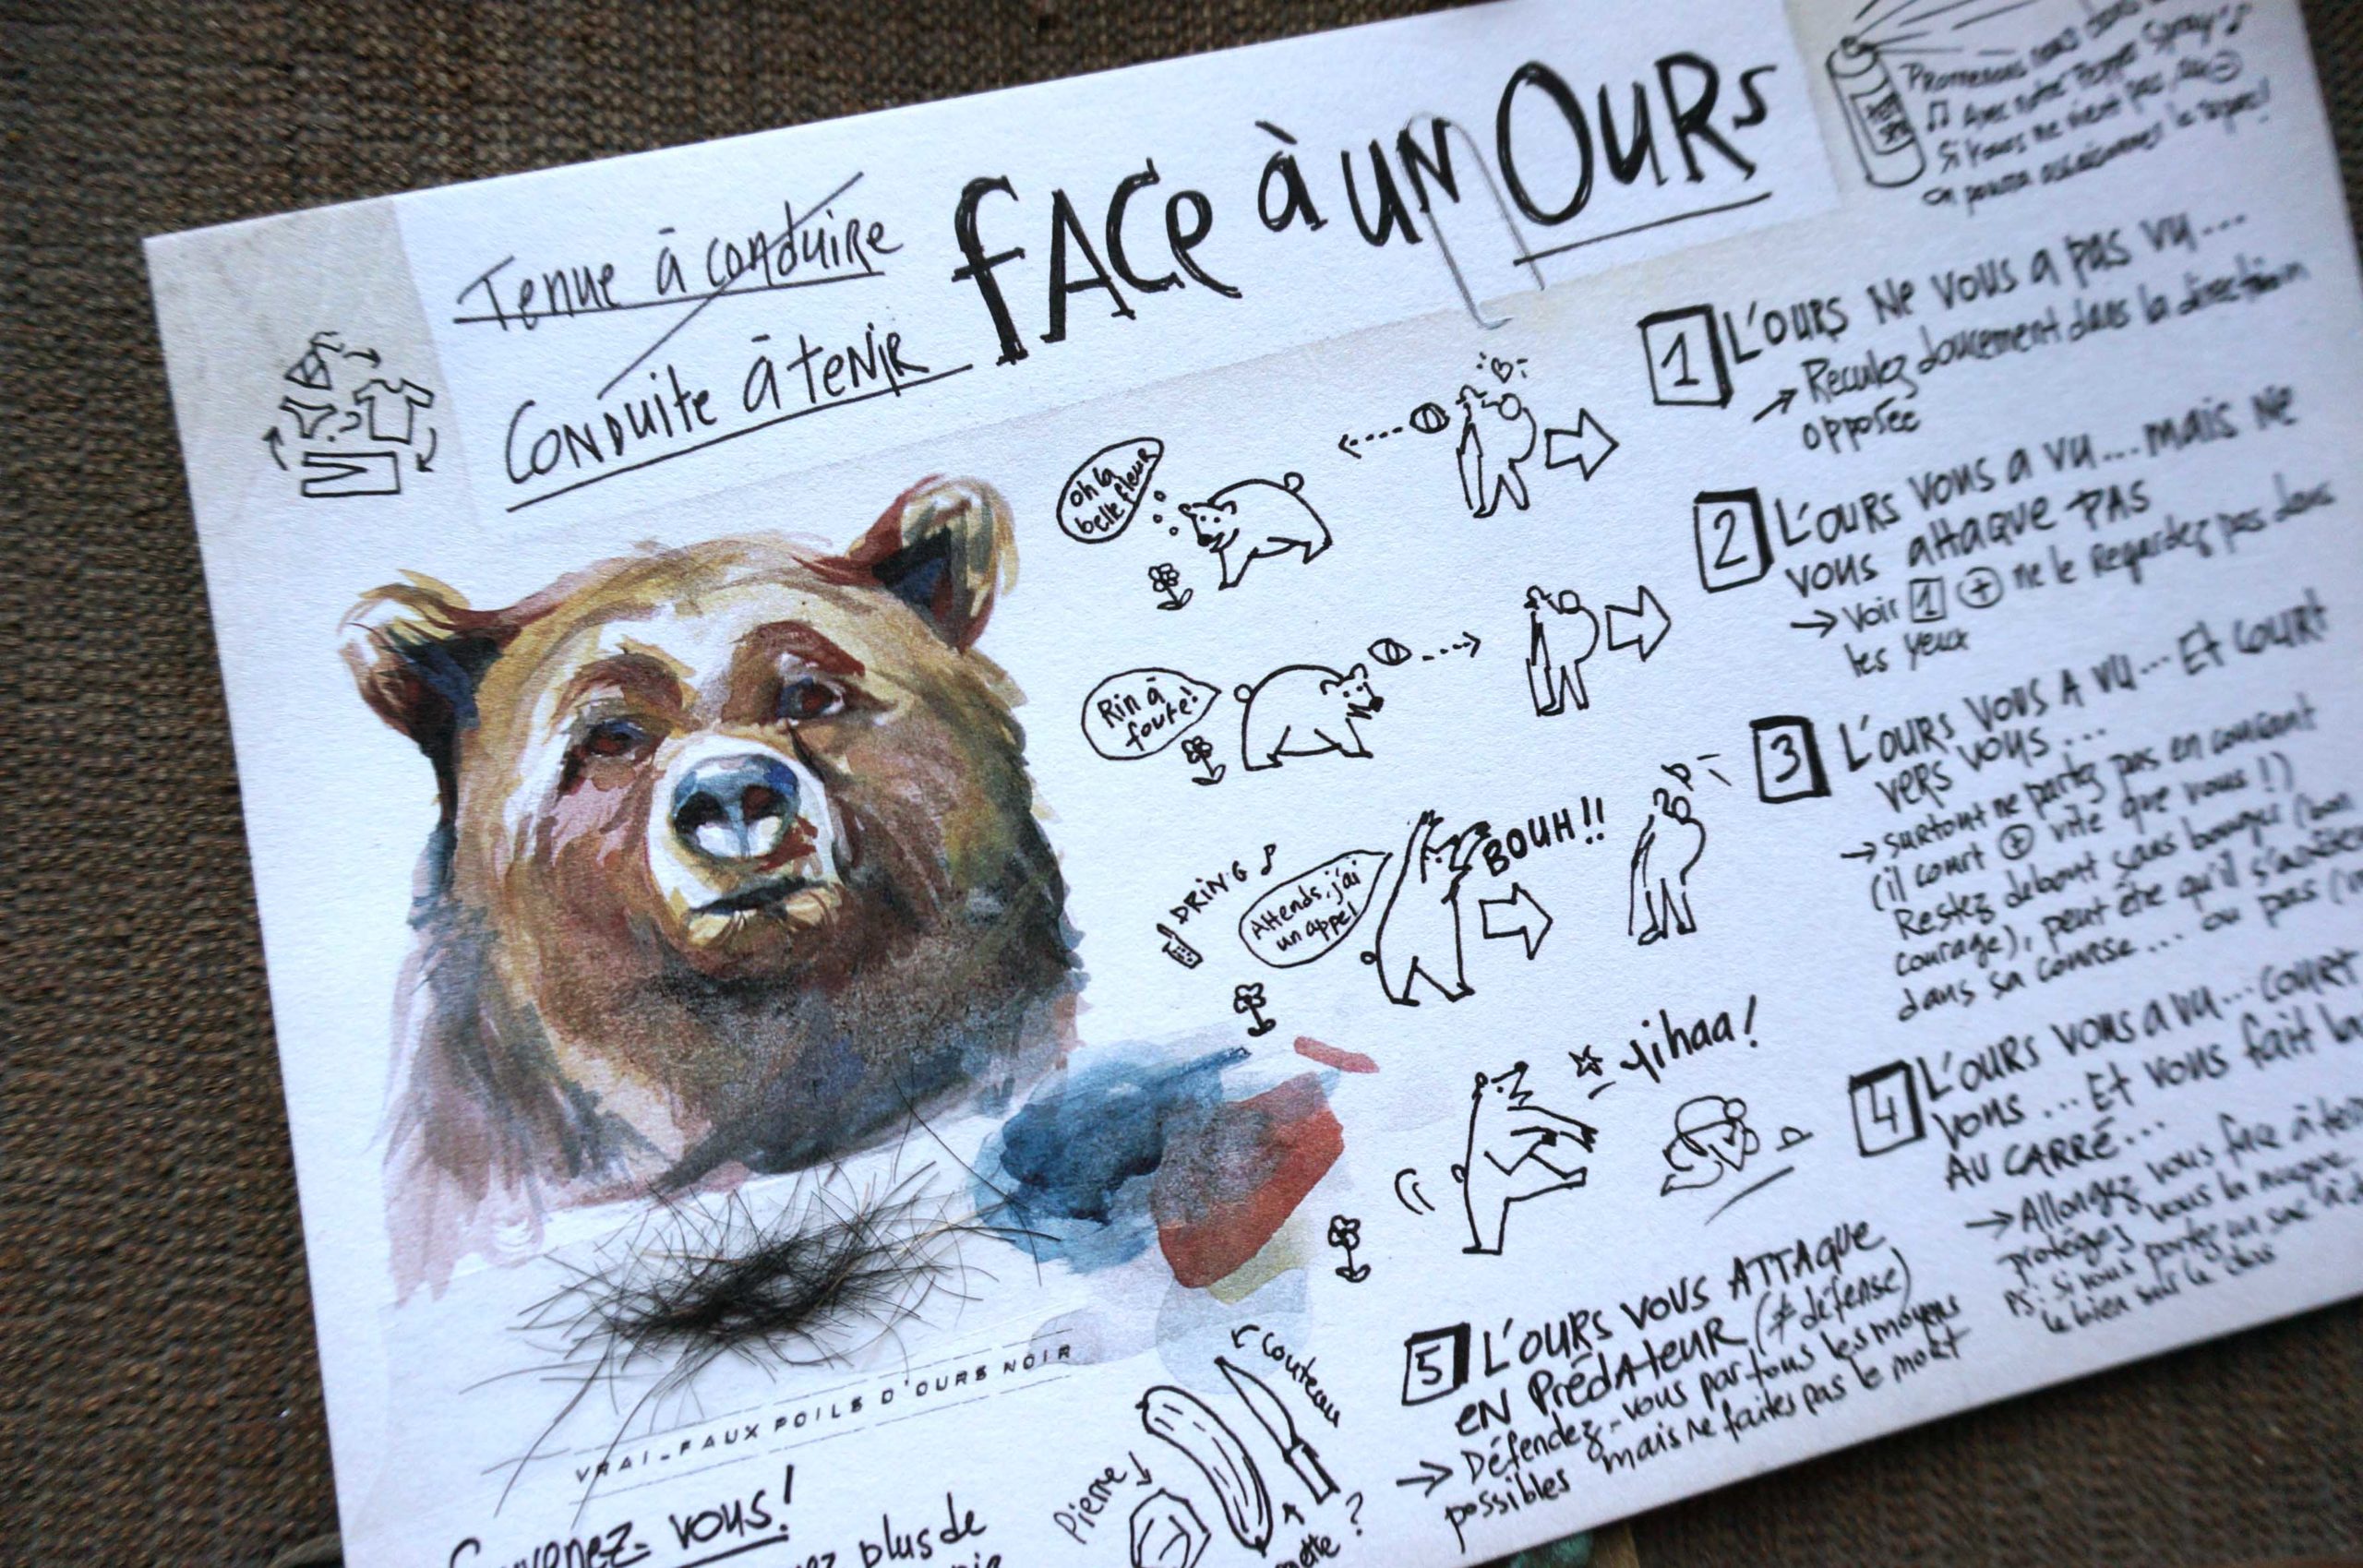 Tenue à conduire
Conduite à tenir
FACE à UN OURS
Promenons nous dans
Avec notre Pepper Spray
Si l'ours ne vient pas, au ⊖
on pourra assaisonner le repas!
oh la
belle fleur
1 L'OURS Ne vous a pas vu...
→ Reculez doucement dans la direction
opposée
Rin à
foutre!
2 L'OURS vous a vu... mais ne
vous attaque PAS
→ Voir 1 ⊕ ne le Regardez pas dans
les yeux
DRiNG
Attends, j'ai
un appel
BOUH!!
3 L'OURS vous A vu... Et court
vers vous...
→ surtout ne partez pas en courant
(il court ⊕ vite que vous!!)
Restez debout sans bouger (bon
courage), peut être qu'il s'arrêtera
dans sa course... ou pas
yihaa!
4 L'OURS vous a vu... court
vous... Et vous fait la
AU CARRÉ...
→ Allongez vous face à terre
protégez vous la nuque.
PS: si vous portez un sac à
le bien sur le dos
5 L'OURS vous ATTAque
eN PrédAteuR (≠ défense)
→ Défendez-vous par tous les moyens
possibles mais ne faites pas le mort
VRAI-FAUX POILS D'OURS NOIR
couteau
Pierre
?
vous!
plus de